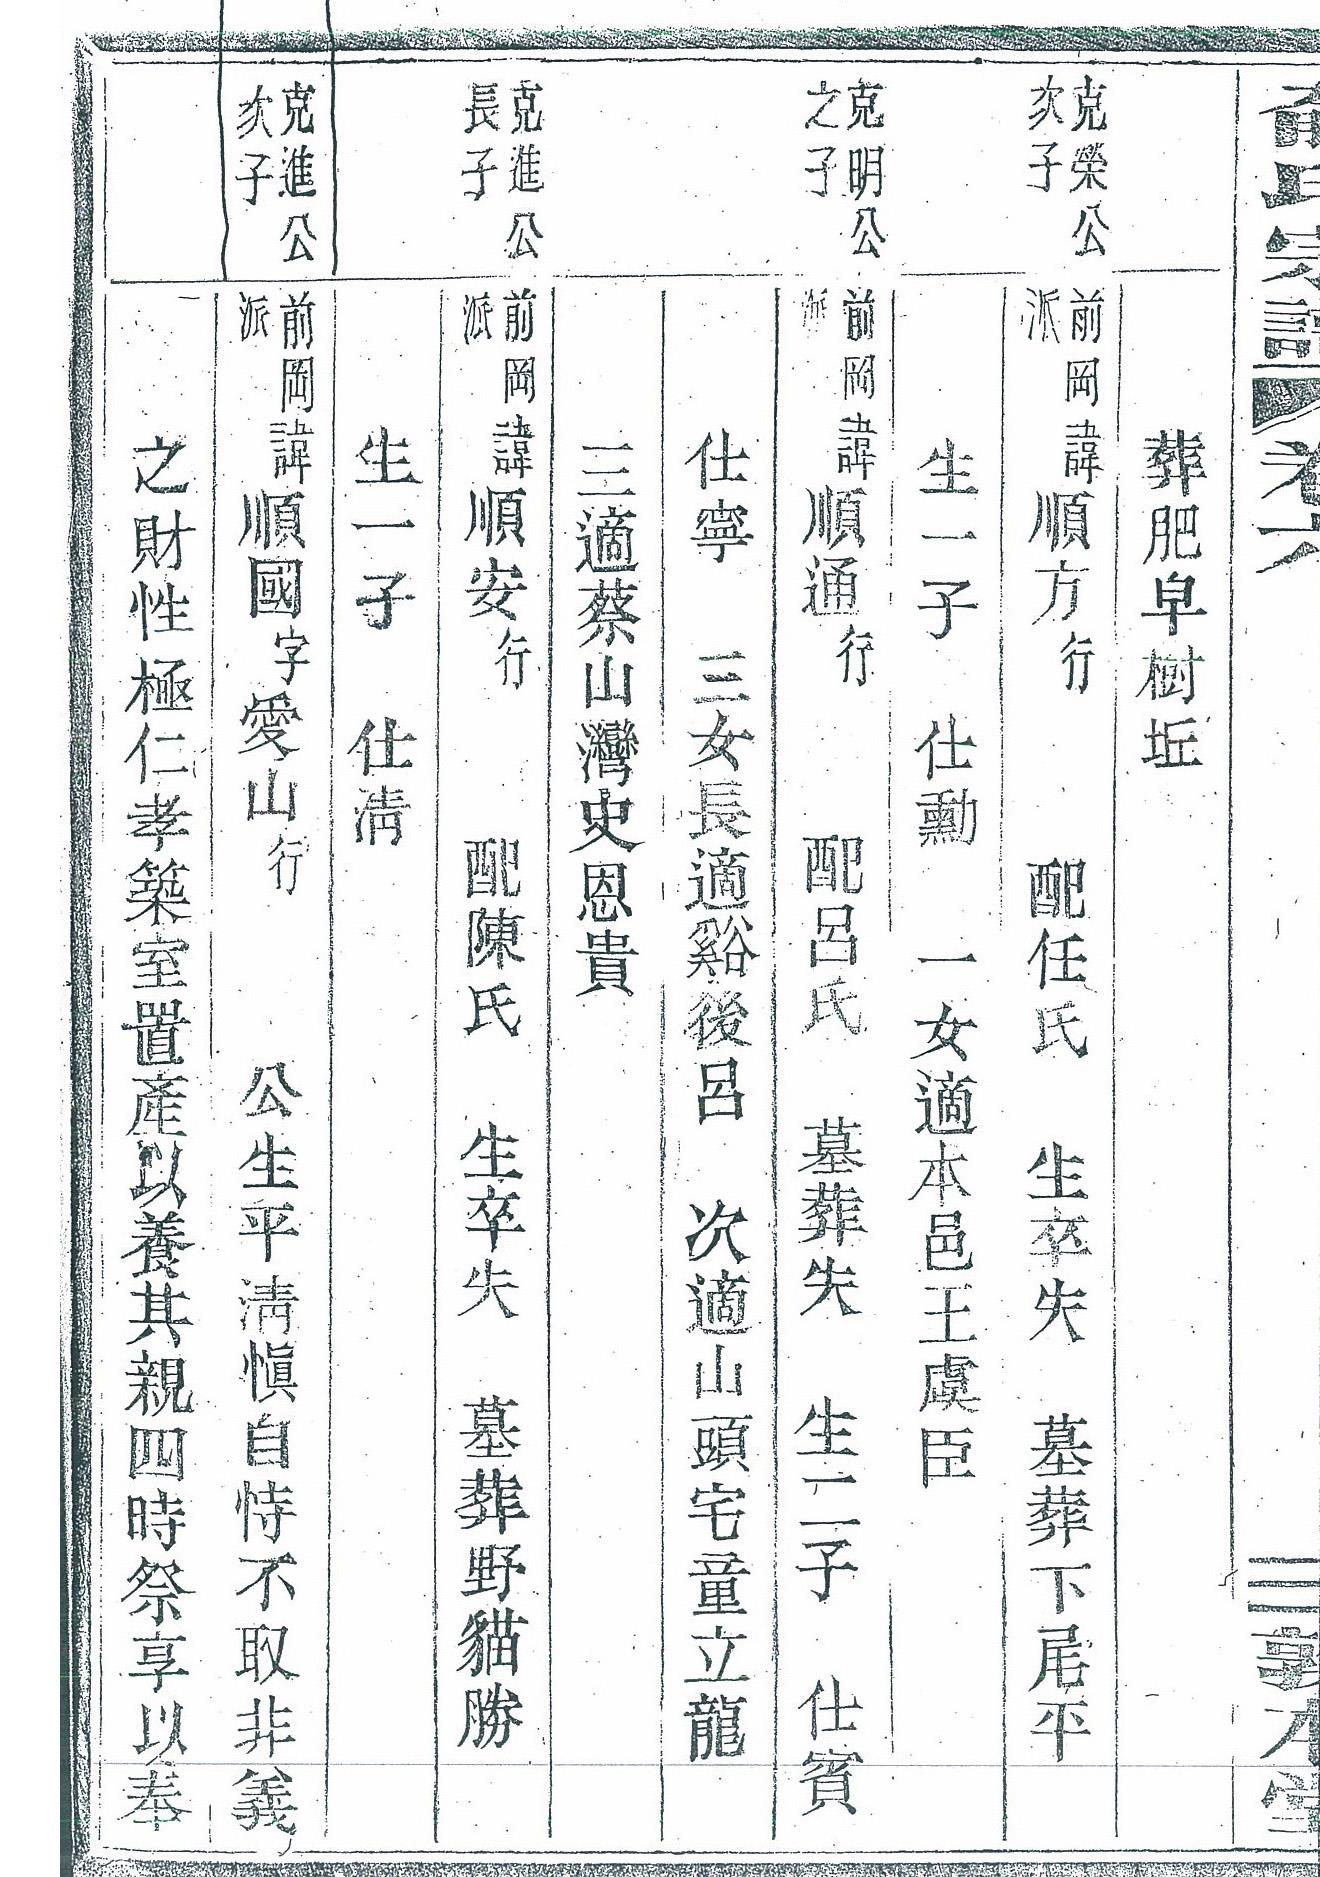 俞氏宗譜 卷六 三 敦本堂
葬肥皁樹坵
克榮公次子
前岡派諱順方行 配任氏 生卒失 墓葬下尾平
生一子 仕勳 一女適本邑王虞臣
克明公之子
前岡派諱順通行 配呂氏 墓葬失 生二子 仕賓
仕寧 三女長適谿後呂 次適山頭宅童立龍
三適蔡山灣史恩貴
克進公長子
前岡派諱順安行 配陳氏 生卒失 墓葬野貓勝
生一子 仕淸
克進公次子
前岡派諱順國字愛山行 公生平淸愼自恃不取非義
之財性極仁孝築室置產以養其親四時祭享以奉